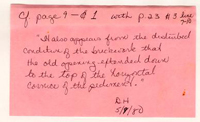 Cf page 9 - ¶ 1 with p. 23 ¶ 3, line 7-10
"It also appears from the disturbed
condition of the brickwork that
the old opening extended down
to the top of the horizontal
cornice of the pediment."
5/9/80